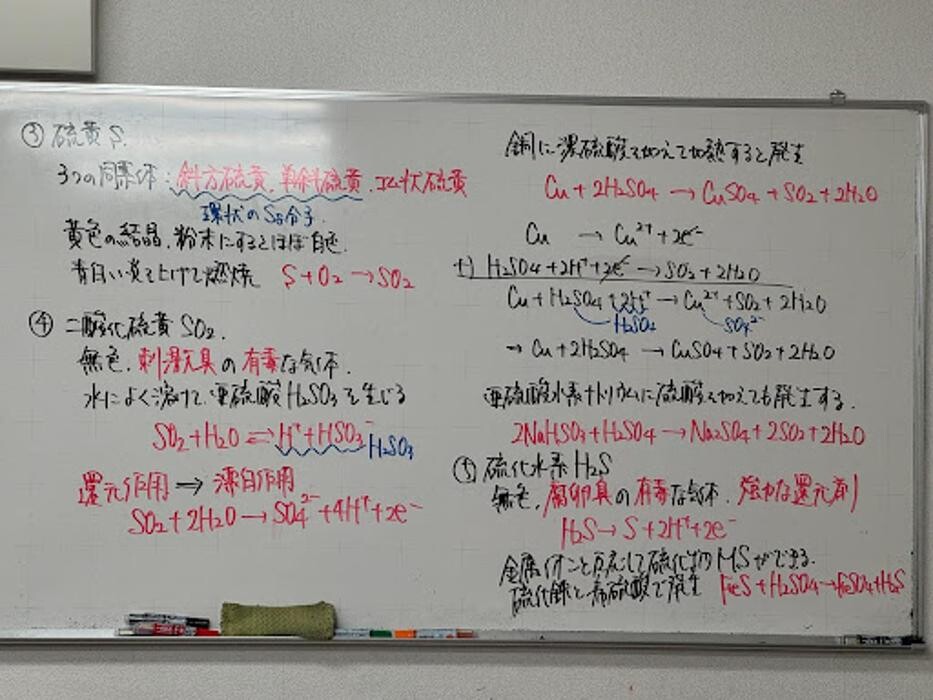 ③ 硫黄 S.
3つの同素体：斜方硫黄、単斜硫黄、ゴム状硫黄
環状のS8分子.
黄色の結晶、粉末にするとほぼ白色.
青白い炎を上げて燃焼 S+O2→SO2
④ 二酸化硫黄 SO2.
無色、刺激臭の有毒な気体.
水によく溶けて、亜硫酸 H2SO3を生じる
SO2+H2O ⇌ H⁺+HSO3⁻
H2SO3
還元作用 → 漂白作用
SO2+2H2O → SO4²⁻+4H⁺+2e⁻
銅に濃硫酸を加えて加熱すると発生
Cu + 2H2SO4 → CuSO4 + SO2 + 2H2O
Cu → Cu²⁺ + 2e⁻
+) H2SO4+2H⁺+2e⁻ → SO2+2H2O
Cu + H2SO4+2H⁺ → Cu²⁺+SO2+2H2O
H2SO4 SO4²⁻
→ Cu + 2H2SO4 → CuSO4+SO2+2H2O
亜硫酸水素ナトリウムに硫酸を加えても発生する.
2NaHSO3+H2SO4 → Na2SO4+2SO2+2H2O
⑤ 硫化水素 H2S
無色、腐卵臭の有毒な気体、強力な還元剤
H2S→ S+2H⁺+2e⁻
金属イオンと反応して硫化物MSができる.
硫化鉄と希硫酸で発生 FeS+H2SO4→FeSO4+H2S